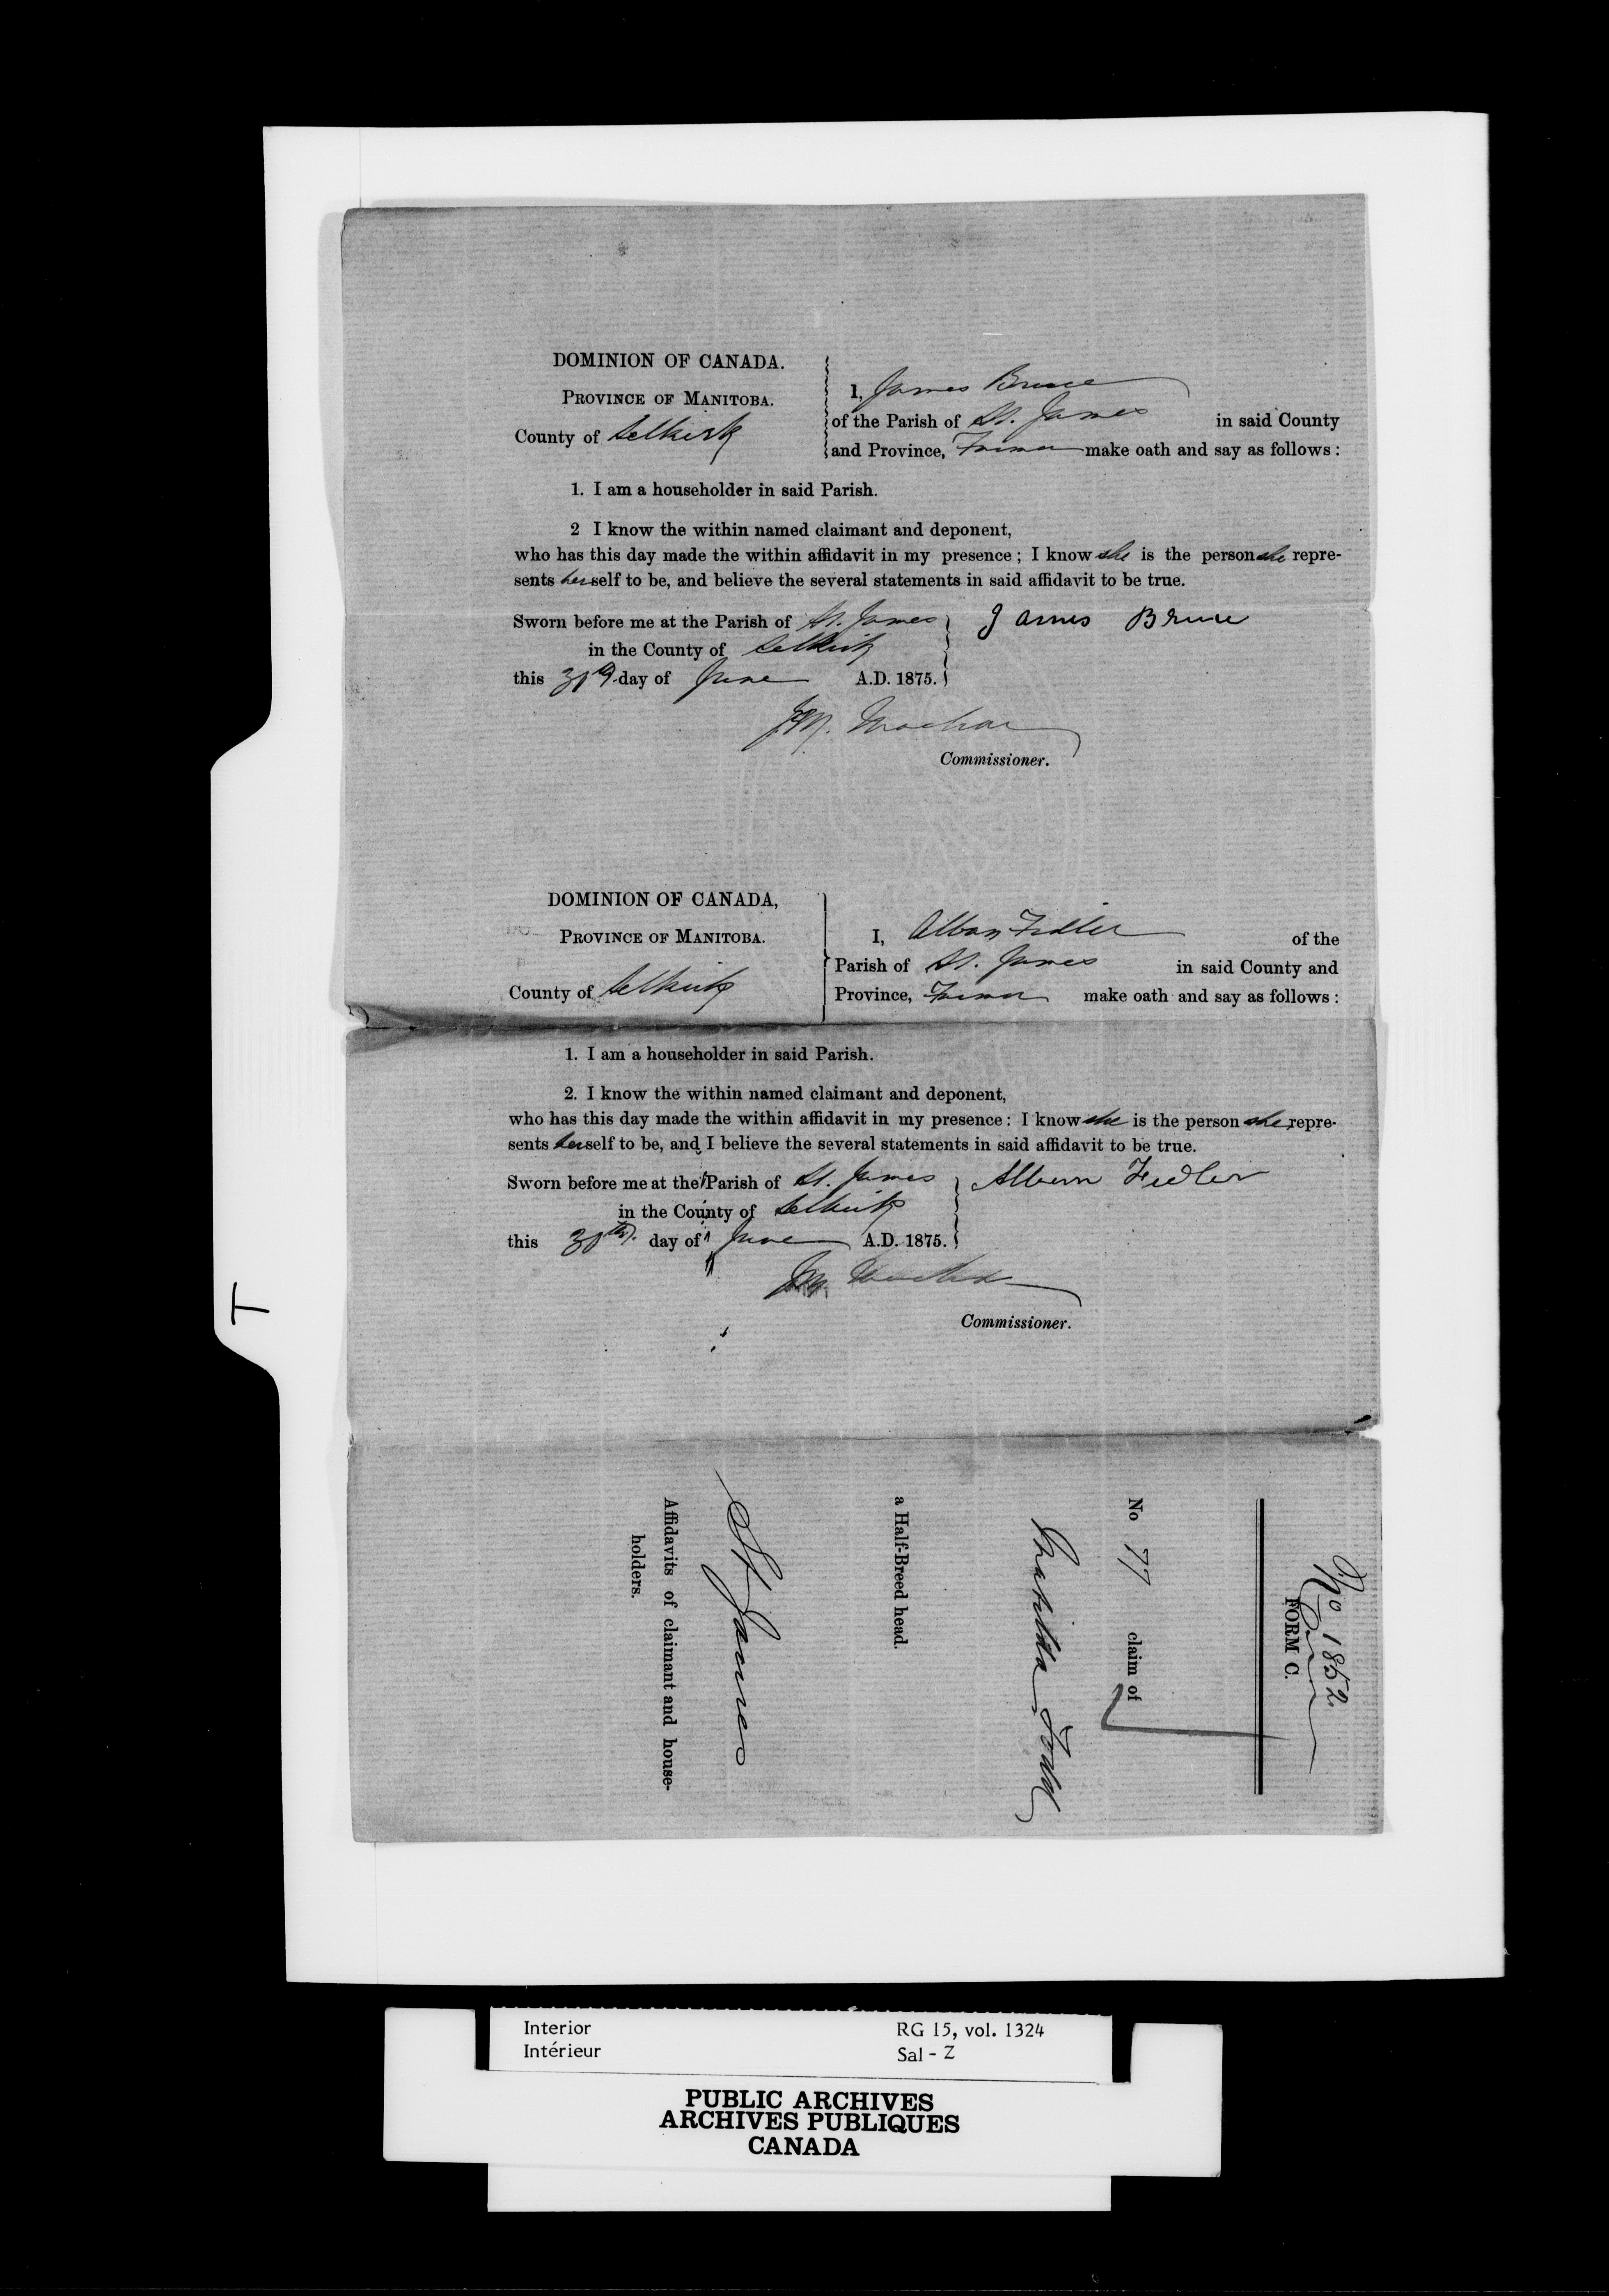 DOMINION OF CANADA.
PROVINCE OF MANITOBA.
County of Selkirk
I, James Bruce
of the Parish of St. James in said County
and Province, Farmer make oath and say as follows :
1. I am a householder in said Parish.
2 I know the within named claimant and deponent,
who has this day made the within affidavit in my presence ; I know she is the person she repre-
sents herself to be, and believe the several statements in said affidavit to be true.
Sworn before me at the Parish of St. James
in the County of Selkirk
this 30th day of June A.D. 1875.
James Bruce
Commissioner.
DOMINION OF CANADA,
PROVINCE OF MANITOBA.
County of Selkirk
I, Alban Fidler of the
Parish of St. James in said County and
Province, Farmer make oath and say as follows :
1. I am a householder in said Parish.
2. I know the within named claimant and deponent,
who has this day made the within affidavit in my presence : I know she is the person she repre-
sents herself to be, and I believe the several statements in said affidavit to be true.
Sworn before me at the Parish of St. James
in the County of Selkirk
this 30th day of June A.D. 1875.
Fidler
Commissioner.
T
No 1852
FORM C.
No 77 claim of
Matilda Todd
a Half-Breed head.
St James
Affidavits of claimant and house-
holders.
Interior
Intérieur
RG 15, vol. 1324
Sal - Z
PUBLIC ARCHIVES
ARCHIVES PUBLIQUES
CANADA